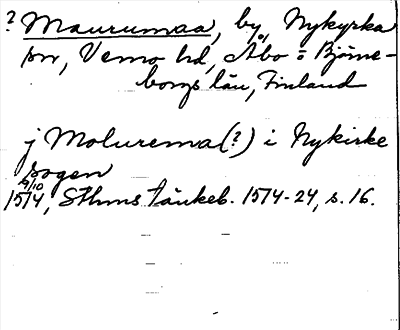 ? Maurumaa, by, Nykyrka
sn, Vemo hd, Åbo = Björne-
borgs län, Finland
j Molurema(?) i Nykirke
sogen
9/10
1514, Sthms tänkeb. 1514-24, s. 16.